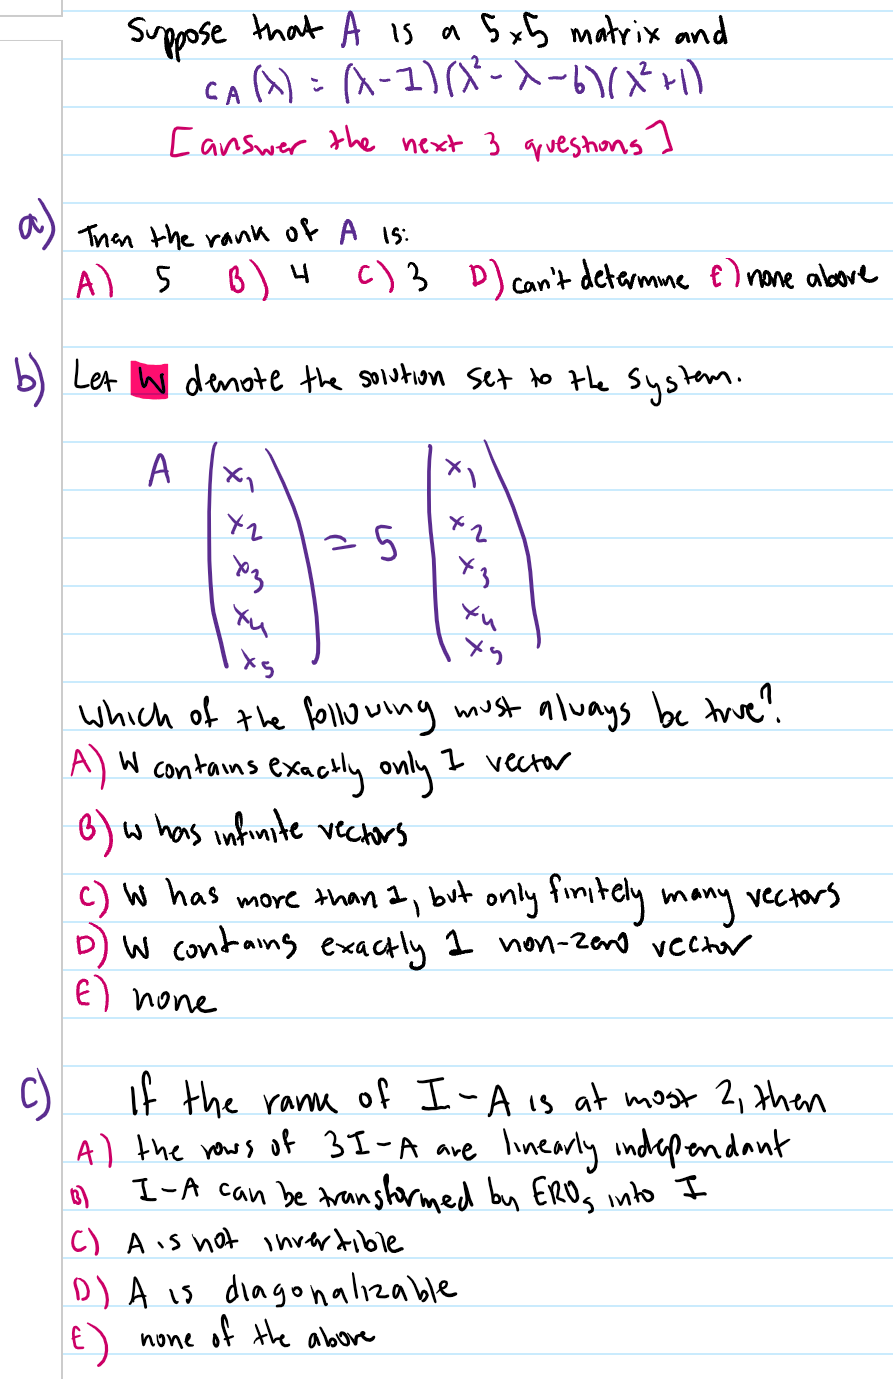 Suppose that A is a 5x5 matrix and
C_A(λ) = (λ-1)(λ²-λ-6)(λ²+1)
[answer the next 3 questions]
a) Then the rank of A is:
A) 5 B) 4 C) 3 D) can't determine E) none above
b) Let W denote the solution set to the system.
A (x₁ x₂ x₃ x₄ x₅) = 5 (x₁ x₂ x₃ x₄ x₅)
Which of the following must always be true?
A) W contains exactly only 1 vector
B) W has infinite vectors
C) W has more than 1, but only finitely many vectors
D) W contains exactly 1 non-zero vector
E) none
C) If the rank of I-A is at most 2, then
A) the rows of 3I-A are linearly independant
B) I-A can be transformed by EROs into I
C) A is not invertible
D) A is diagonalizable
E) none of the above